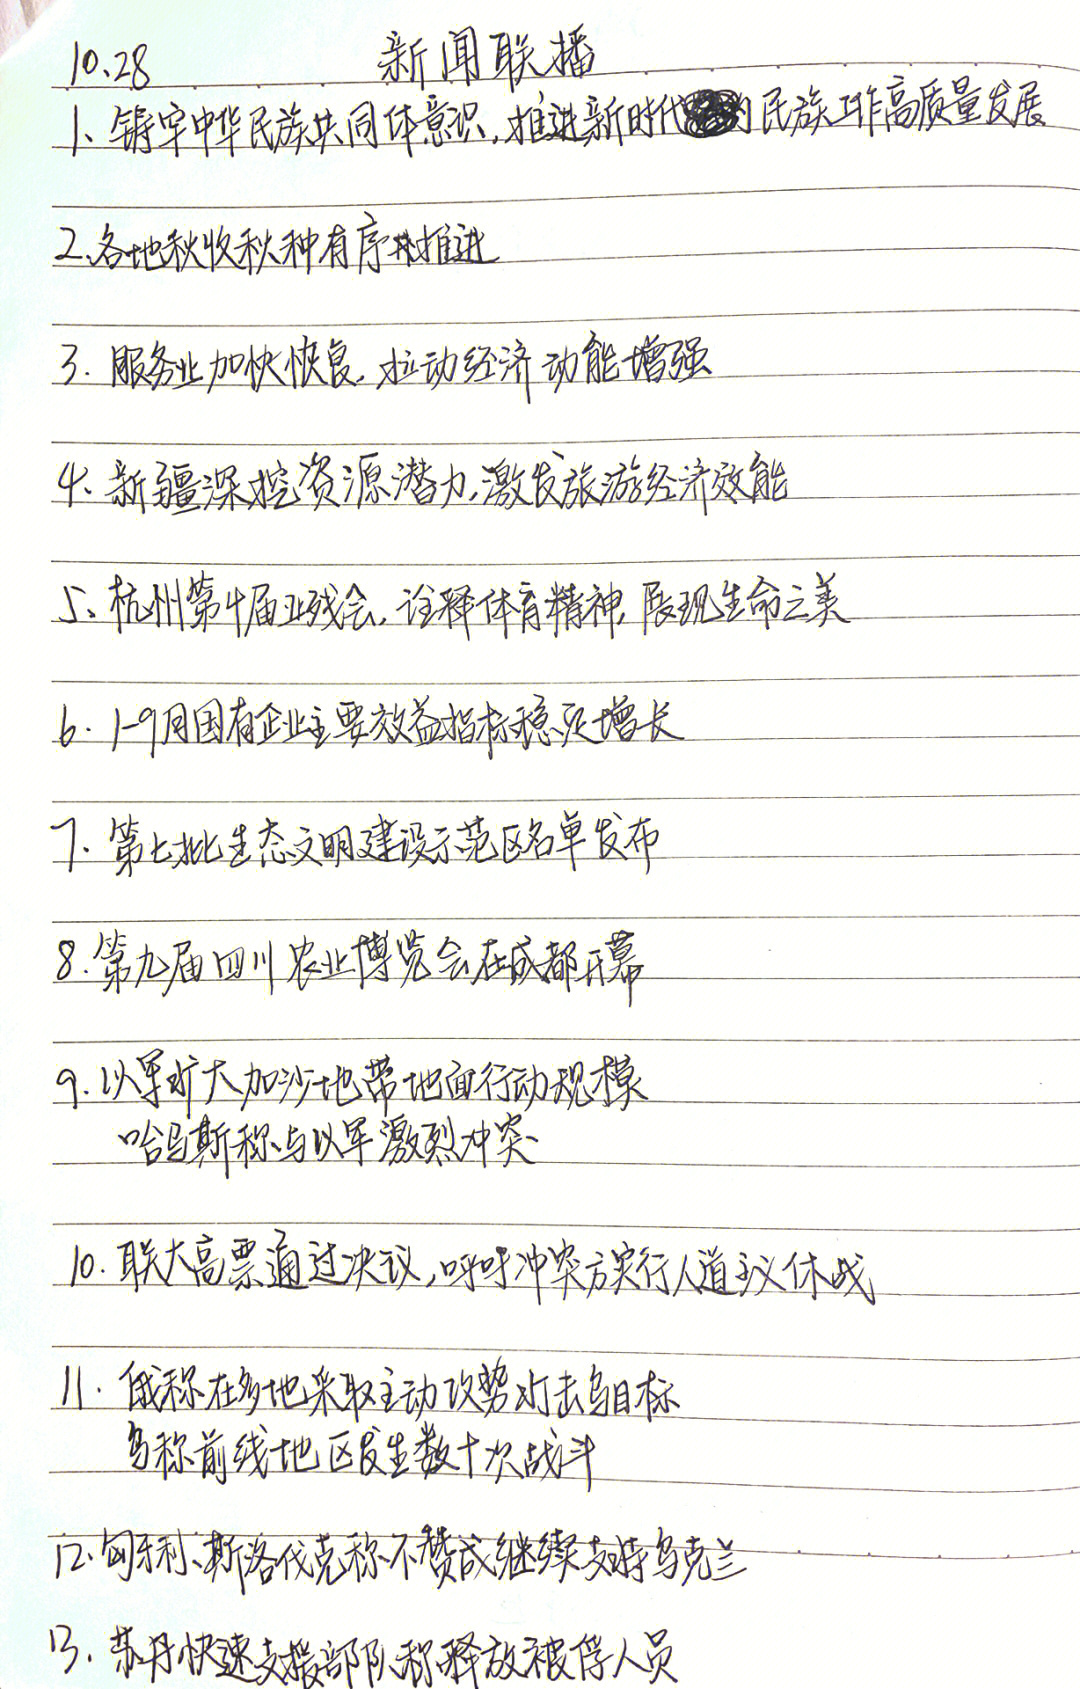 10.28 新闻联播
1、铸牢中华民族共同体意识,推进新时代的民族工作高质量发展
2、各地秋收秋种有序推进
3. 服务业加快恢复,拉动经济动能增强
4、新疆深挖资源潜力,激发旅游经济效能
5、杭州第4届亚残会,诠释体育精神,展现生命之美
6. 1-9月国有企业主要效益指标稳定增长
7. 第七批生态文明建设示范区名单发布
8.第九届四川农业博览会在成都开幕
9.以军扩大加沙地带地面行动规模
哈马斯称与以军激烈冲突
10.联大高票通过决议,呼吁冲突方实行人道主义休战
11. 俄称在多地采取主动攻势打击乌目标
乌称前线地区发生数十次战斗
12.匈牙利、斯洛伐克称不赞成继续支持乌克兰
13. 苏丹快速支援部队称释放被俘人员